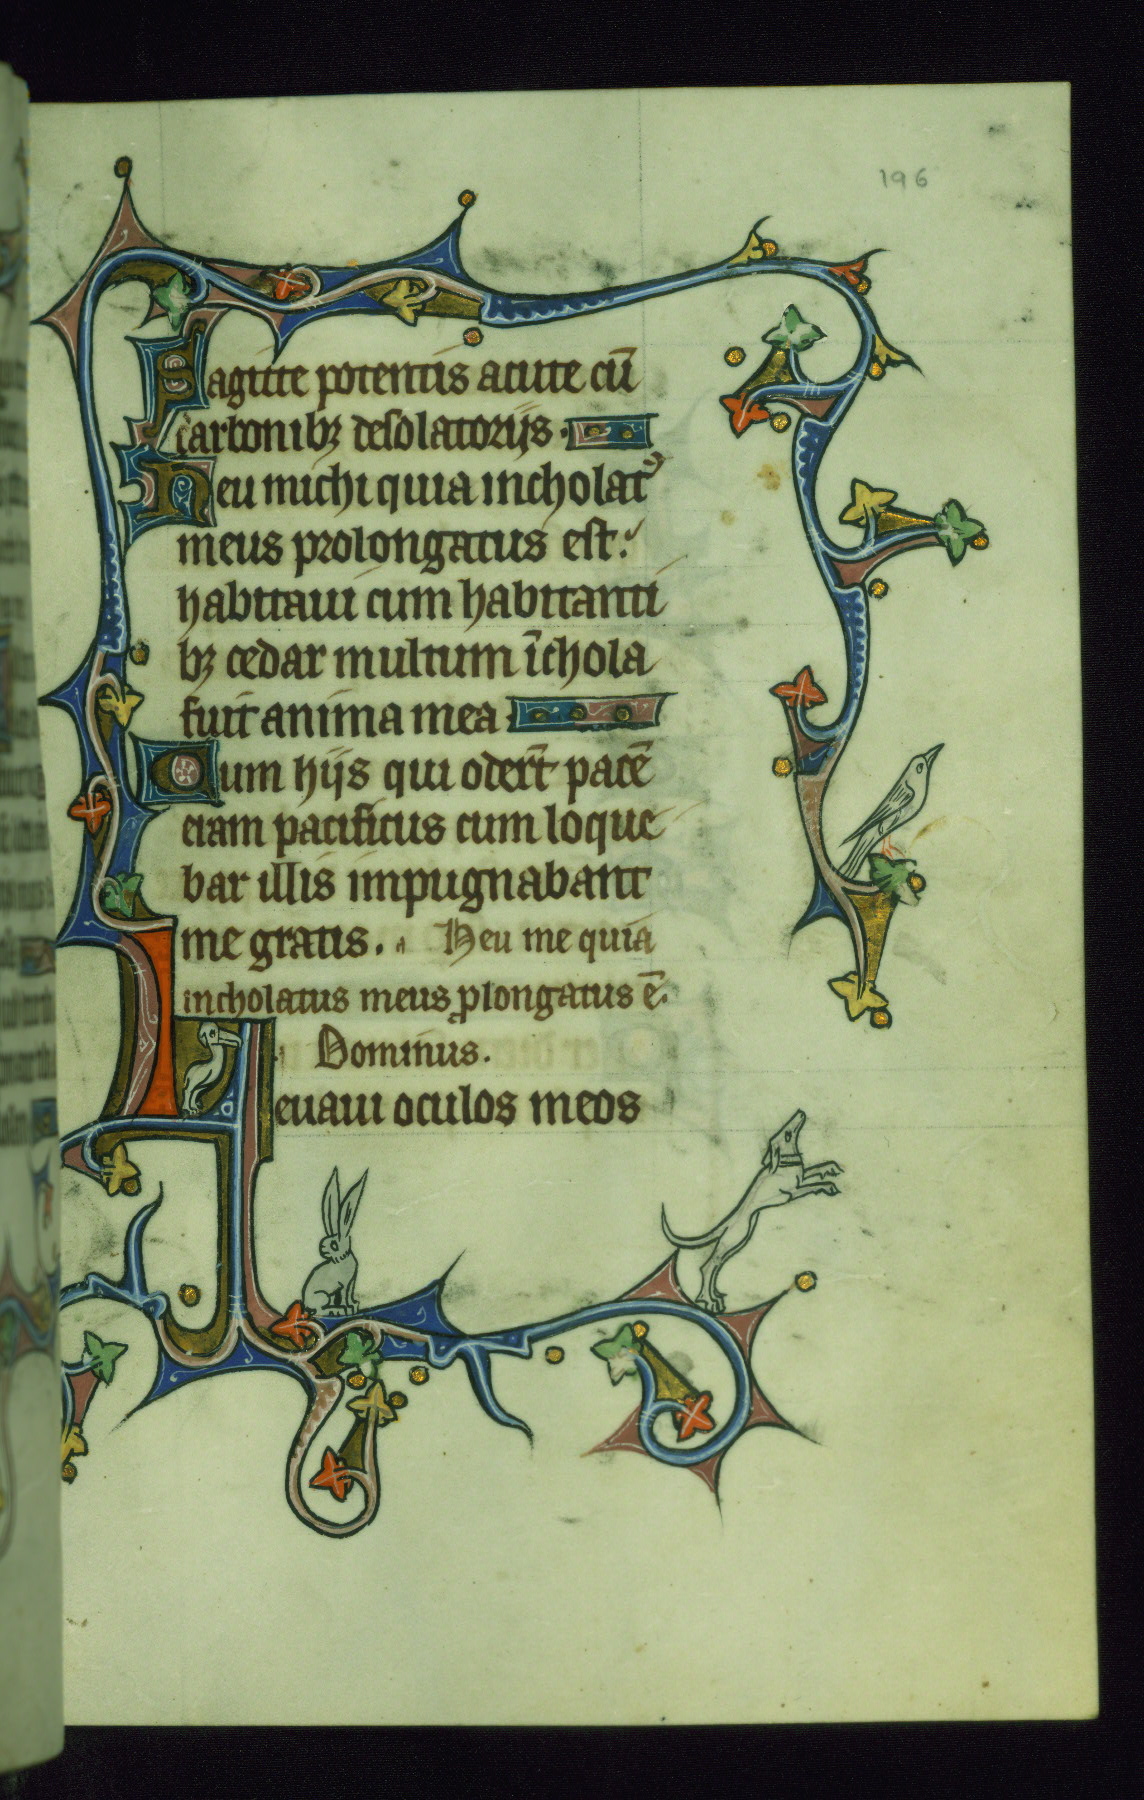 196
Sagitte potentis acute cū
carbonibꝫ desolatorijs.
Heu michi quia incholatꝰ
meus prolongatus est:
habitaui cum habitanti
bꝫ cedar multum īchola
fuit anima mea
Cum hijs qui oder̄t pacē
eram pacificus cum loque
bar illis impugnabant
me gratis. Heu me quia
incholatus meus ꝓlongatus ē.
Dominus.
Leuaui oculos meos